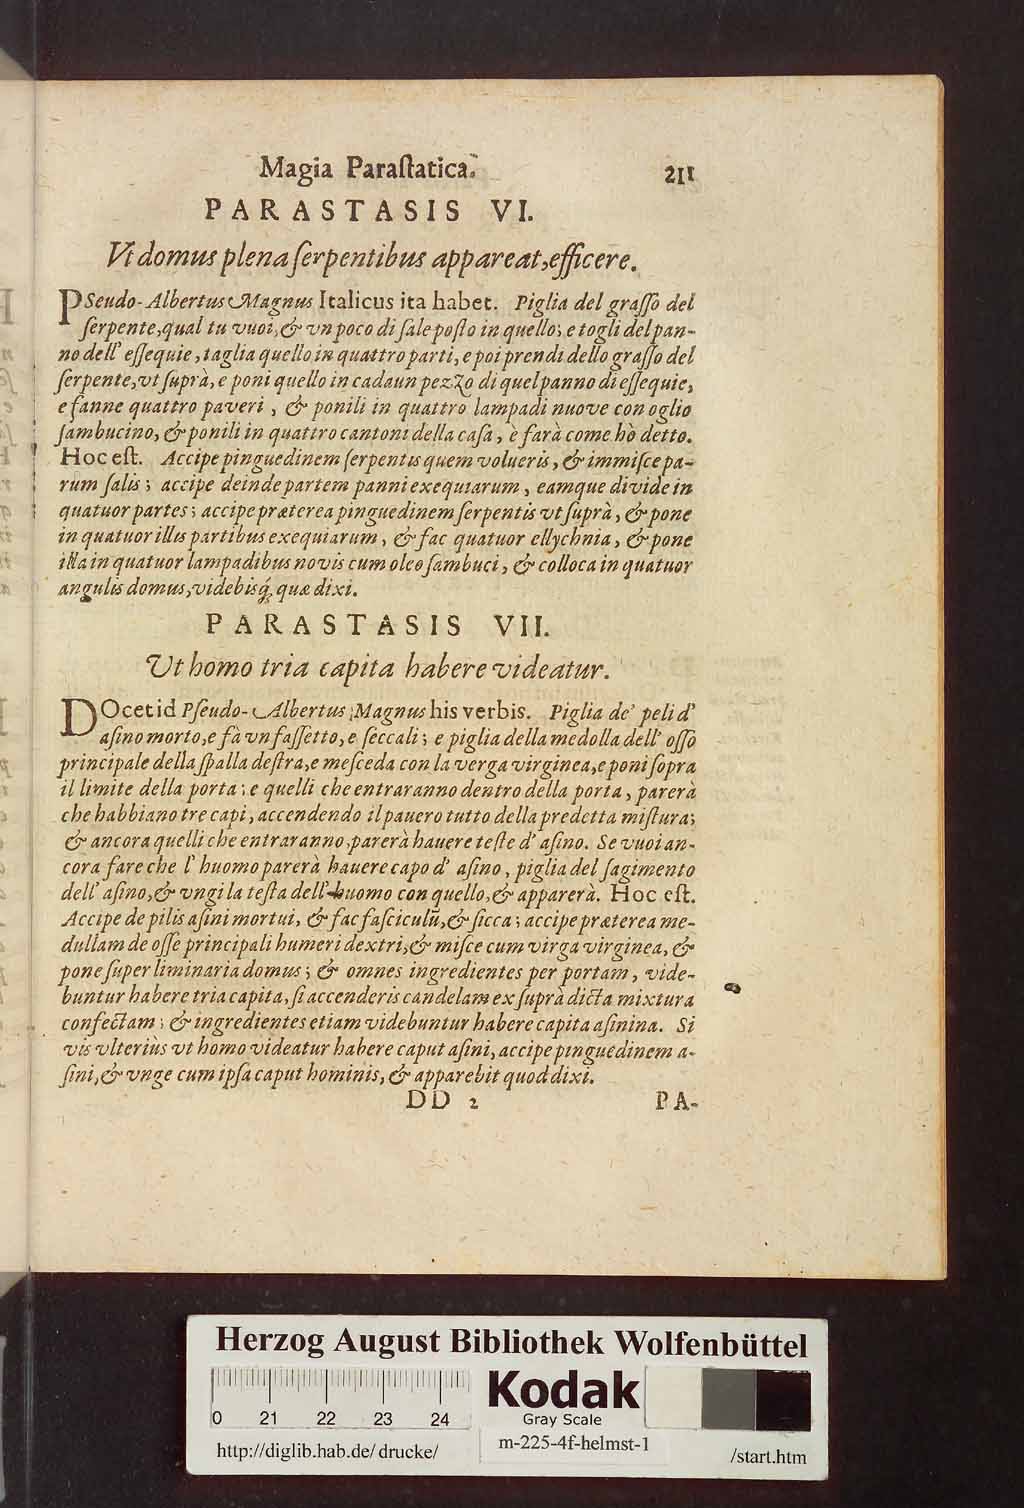 Magia Paraſtatica. 211
PARASTASIS VI.
Vt domus plena ſerpentibus appareat, efficere.
PSeudo-Albertus Magnus Italicus ita habet. Piglia del graſſo del
ſerpente, qual tu vuoi, & vn poco di ſale poſto in quello; e togli del pan-
no dell' eſſequie, taglia quello in quattro parti, e poi prendi dello graſſo del
ſerpente, vt ſuprà, e poni quello in cadaun pezzo di quel panno di eſſequie,
e fanne quattro paveri, & ponili in quattro lampadi nuove con oglio
ſambucino, & ponili in quattro cantoni della caſa, è farà come hò detto.
Hoc eſt. Accipe pinguedinem ſerpentis quem volueris, & immiſce pa-
rum ſalis; accipe deinde partem panni exequiarum, eamque divide in
quatuor partes; accipe præterea pinguedinem ſerpentis vt ſuprà, & pone
in quatuor illis partibus exequiarum, & fac quatuor ellychnia, & pone
illa in quatuor lampadibus novis cum oleo ſambuci, & colloca in quatuor
angulis domus, videbisq́; quæ dixi.
PARASTASIS VII.
Ut homo tria capita habere videatur.
DOcet id Pſeudo-Albertus Magnus his verbis. Piglia de' peli d'
aſino morto, e fà vn faſſetto, e ſeccali; e piglia della medolla dell' oſſo
principale della ſpalla deſtra, e meſceda con la verga virginea, e poni ſopra
il limite della porta; e quelli che entraranno dentro della porta, parerà
che habbiano tre capi, accendendo il pauero tutto della predetta miſtura;
& ancora quelli che entraranno, parerà hauere teſte d' aſino. Se vuoi an-
cora fare che l' huomo parerà hauere capo d' aſino, piglia del ſagimento
dell' aſino, & vngi la teſta dell' huomo con quello, & apparerà. Hoc eſt.
Accipe de pilis aſini mortui, & fac faſciculū, & ſicca; accipe præterea me-
dullam de oſſe principali humeri dextri, & miſce cum virga virginea, &
pone ſuper liminaria domus; & omnes ingredientes per portam, vide-
buntur habere tria capita, ſi accenderis candelam ex ſuprà dicta mixtura
confectam; & ingredientes etiam videbuntur habere capita aſinina. Si
vis vlteriùs vt homo videatur habere caput aſini, accipe pinguedinem a-
ſini, & vnge cum ipſa caput hominis, & apparebit quod dixi.
DD 2 PA-
Herzog August Bibliothek Wolfenbüttel
0 21 22 23 24
Kodak
Gray Scale
http://diglib.hab.de/drucke/ m-225-4f-helmst-1 /start.htm